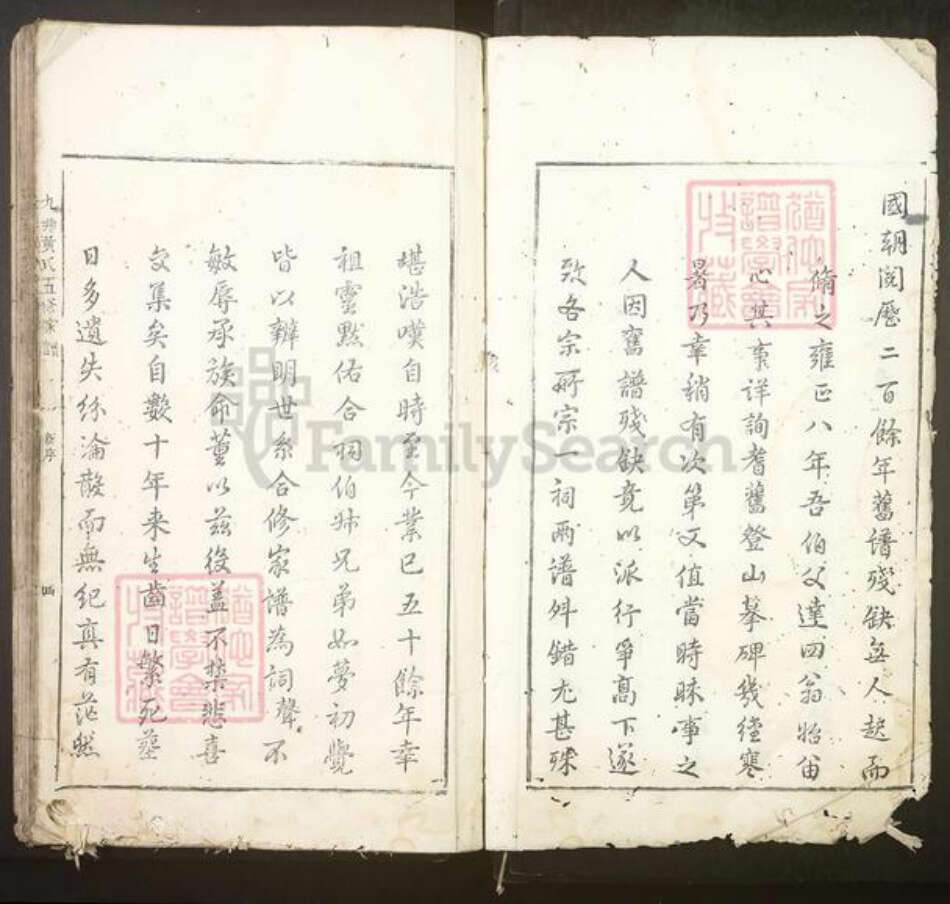 國朝閱歷二百餘年舊譜殘缺無人起而
脩之雍正八年吾伯父達四翁始留
心其事詳詢耆舊登山摹碑幾經寒
暑乃幸稍有次第又值當時昧事之
人因舊譜殘缺竟以派行爭高下遂
致各宗所宗一祠兩譜舛錯尤甚殊
堪浩嘆自時至今業已五十餘年幸
祖靈默佑合祠伯叔兄弟如夢初覺
皆以辨明世系合修家譜為詞聲不
敏辱承族命董以茲役蓋不禁悲喜
交集矣自數十年来生齒日繁死墓
日多遺失紛淪散而無紀真有茫然
黃氏五修家譜
新序
四
FamilySearch